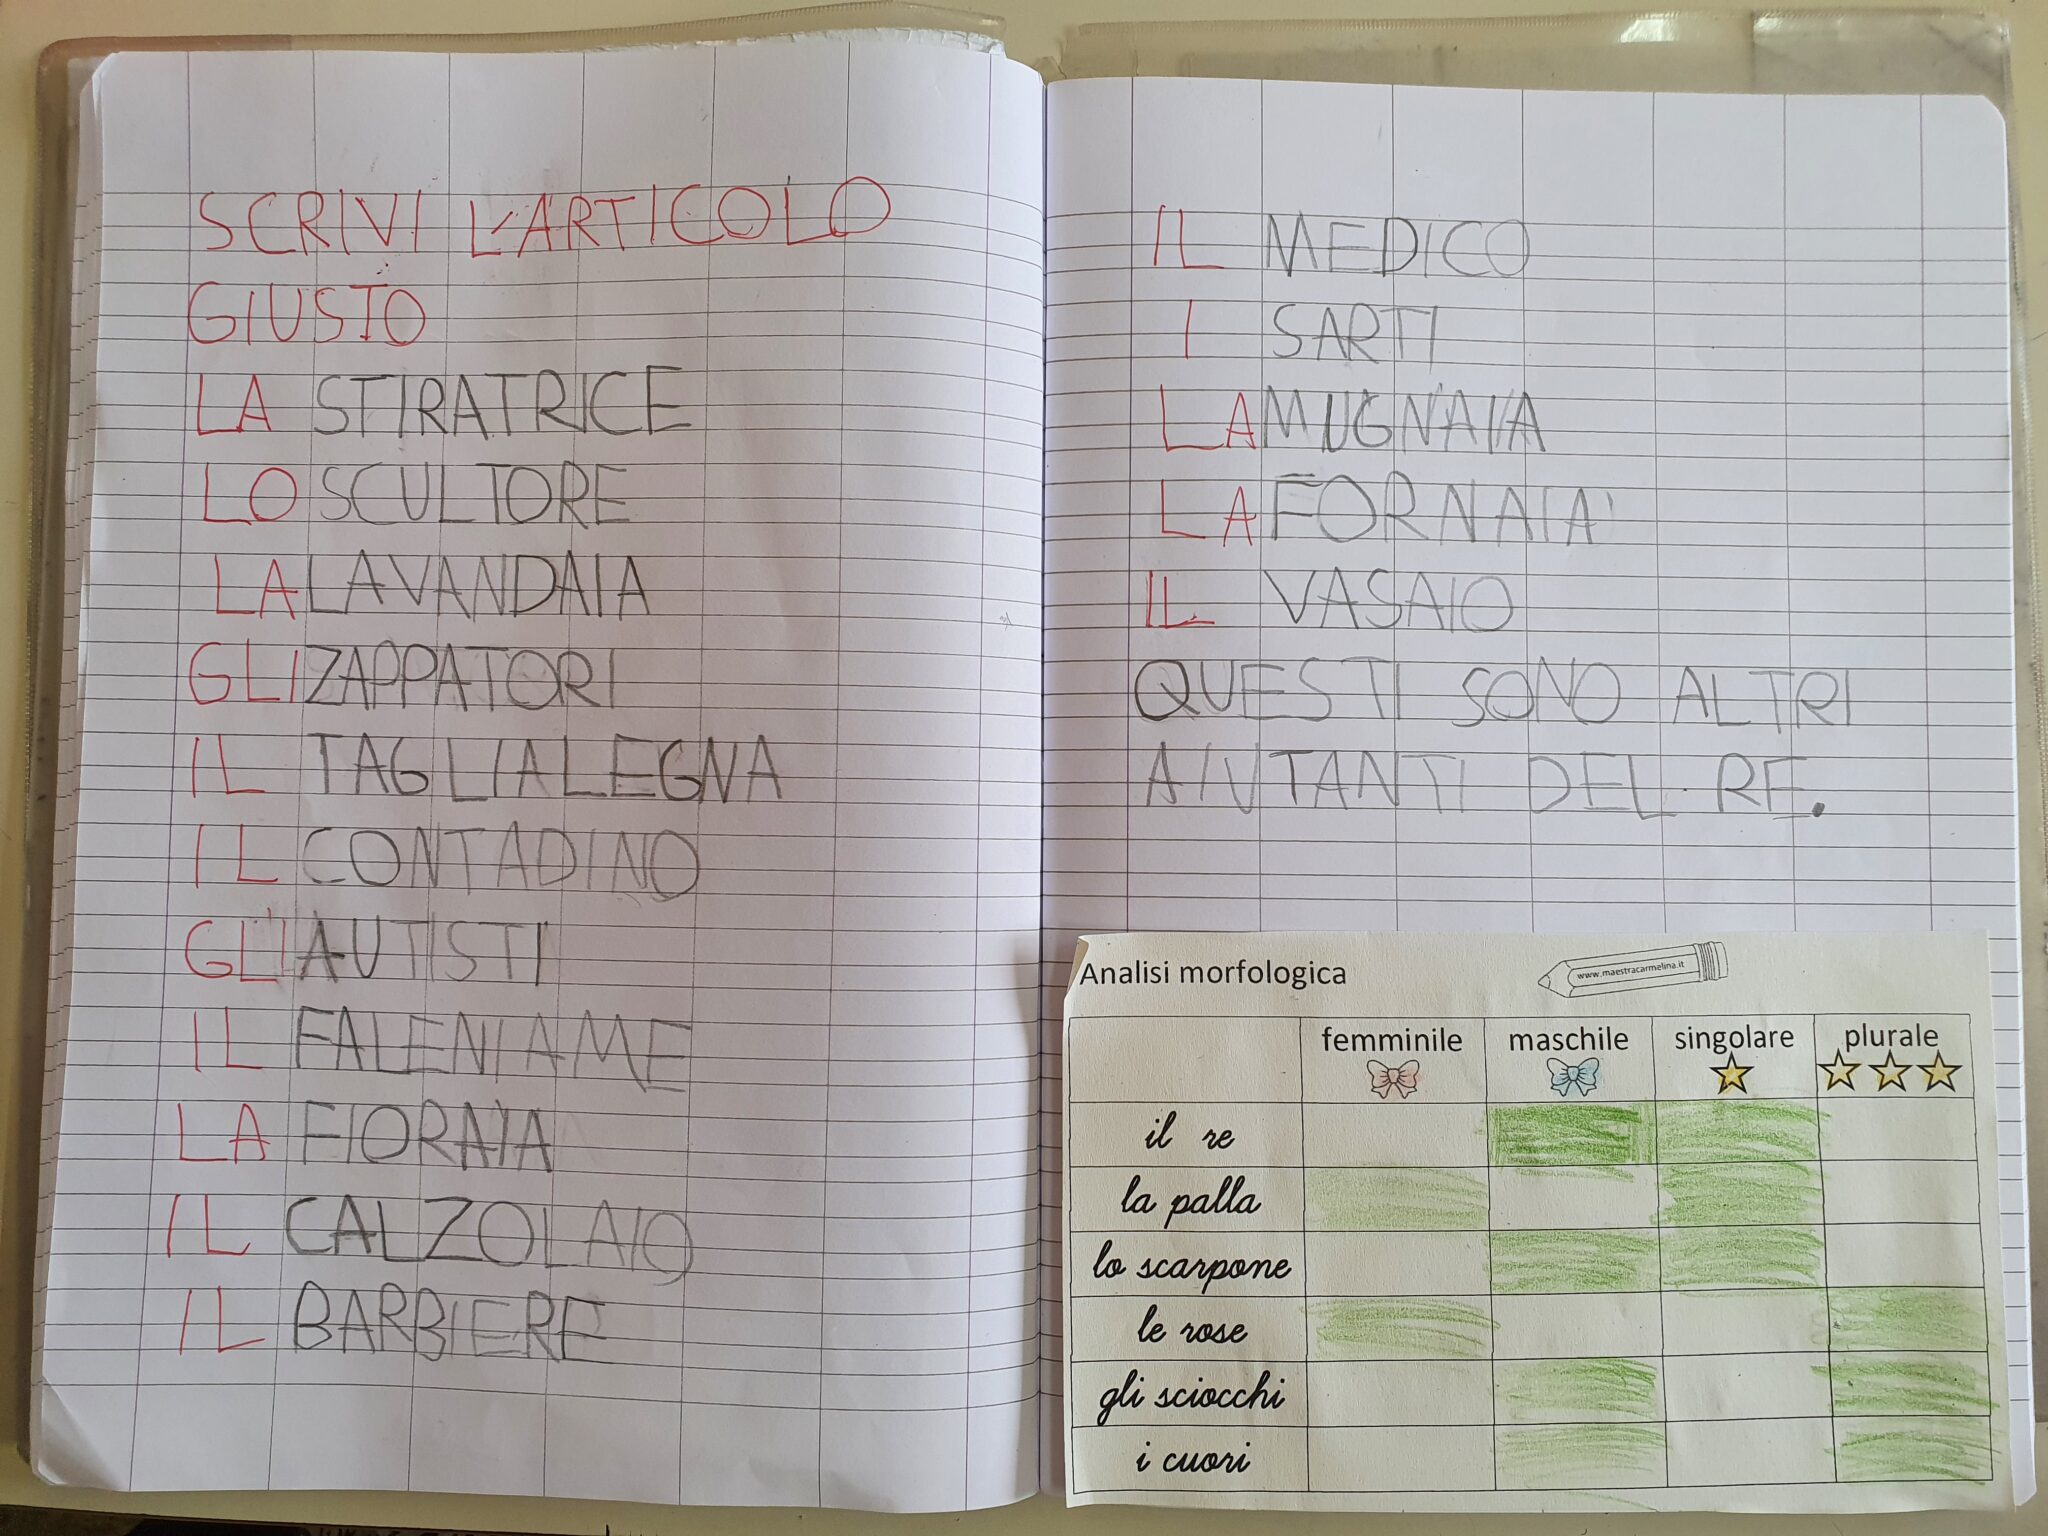 SCRIVI L'ARTICOLO
GIUSTO
LA STIRATRICE
LO SCULTORE
LA LAVANDAIA
GLI ZAPPATORI
IL TAGLIALEGNA
IL CONTADINO
GLI AUTISTI
IL FALENIAME
LA FIORAIA
IL CALZOLAIO
IL BARBIERE
IL MEDICO
I SARTI
LA MUGNAIA
LA FORNAIA
IL VASAIO
QUESTI SONO ALTRI
AIUTANTI DEL RE.
Analisi morfologica www.maestracarmelina.it
femminile maschile singolare plurale
il re
la palla
lo scarpone
le rose
gli sciocchi
i cuori